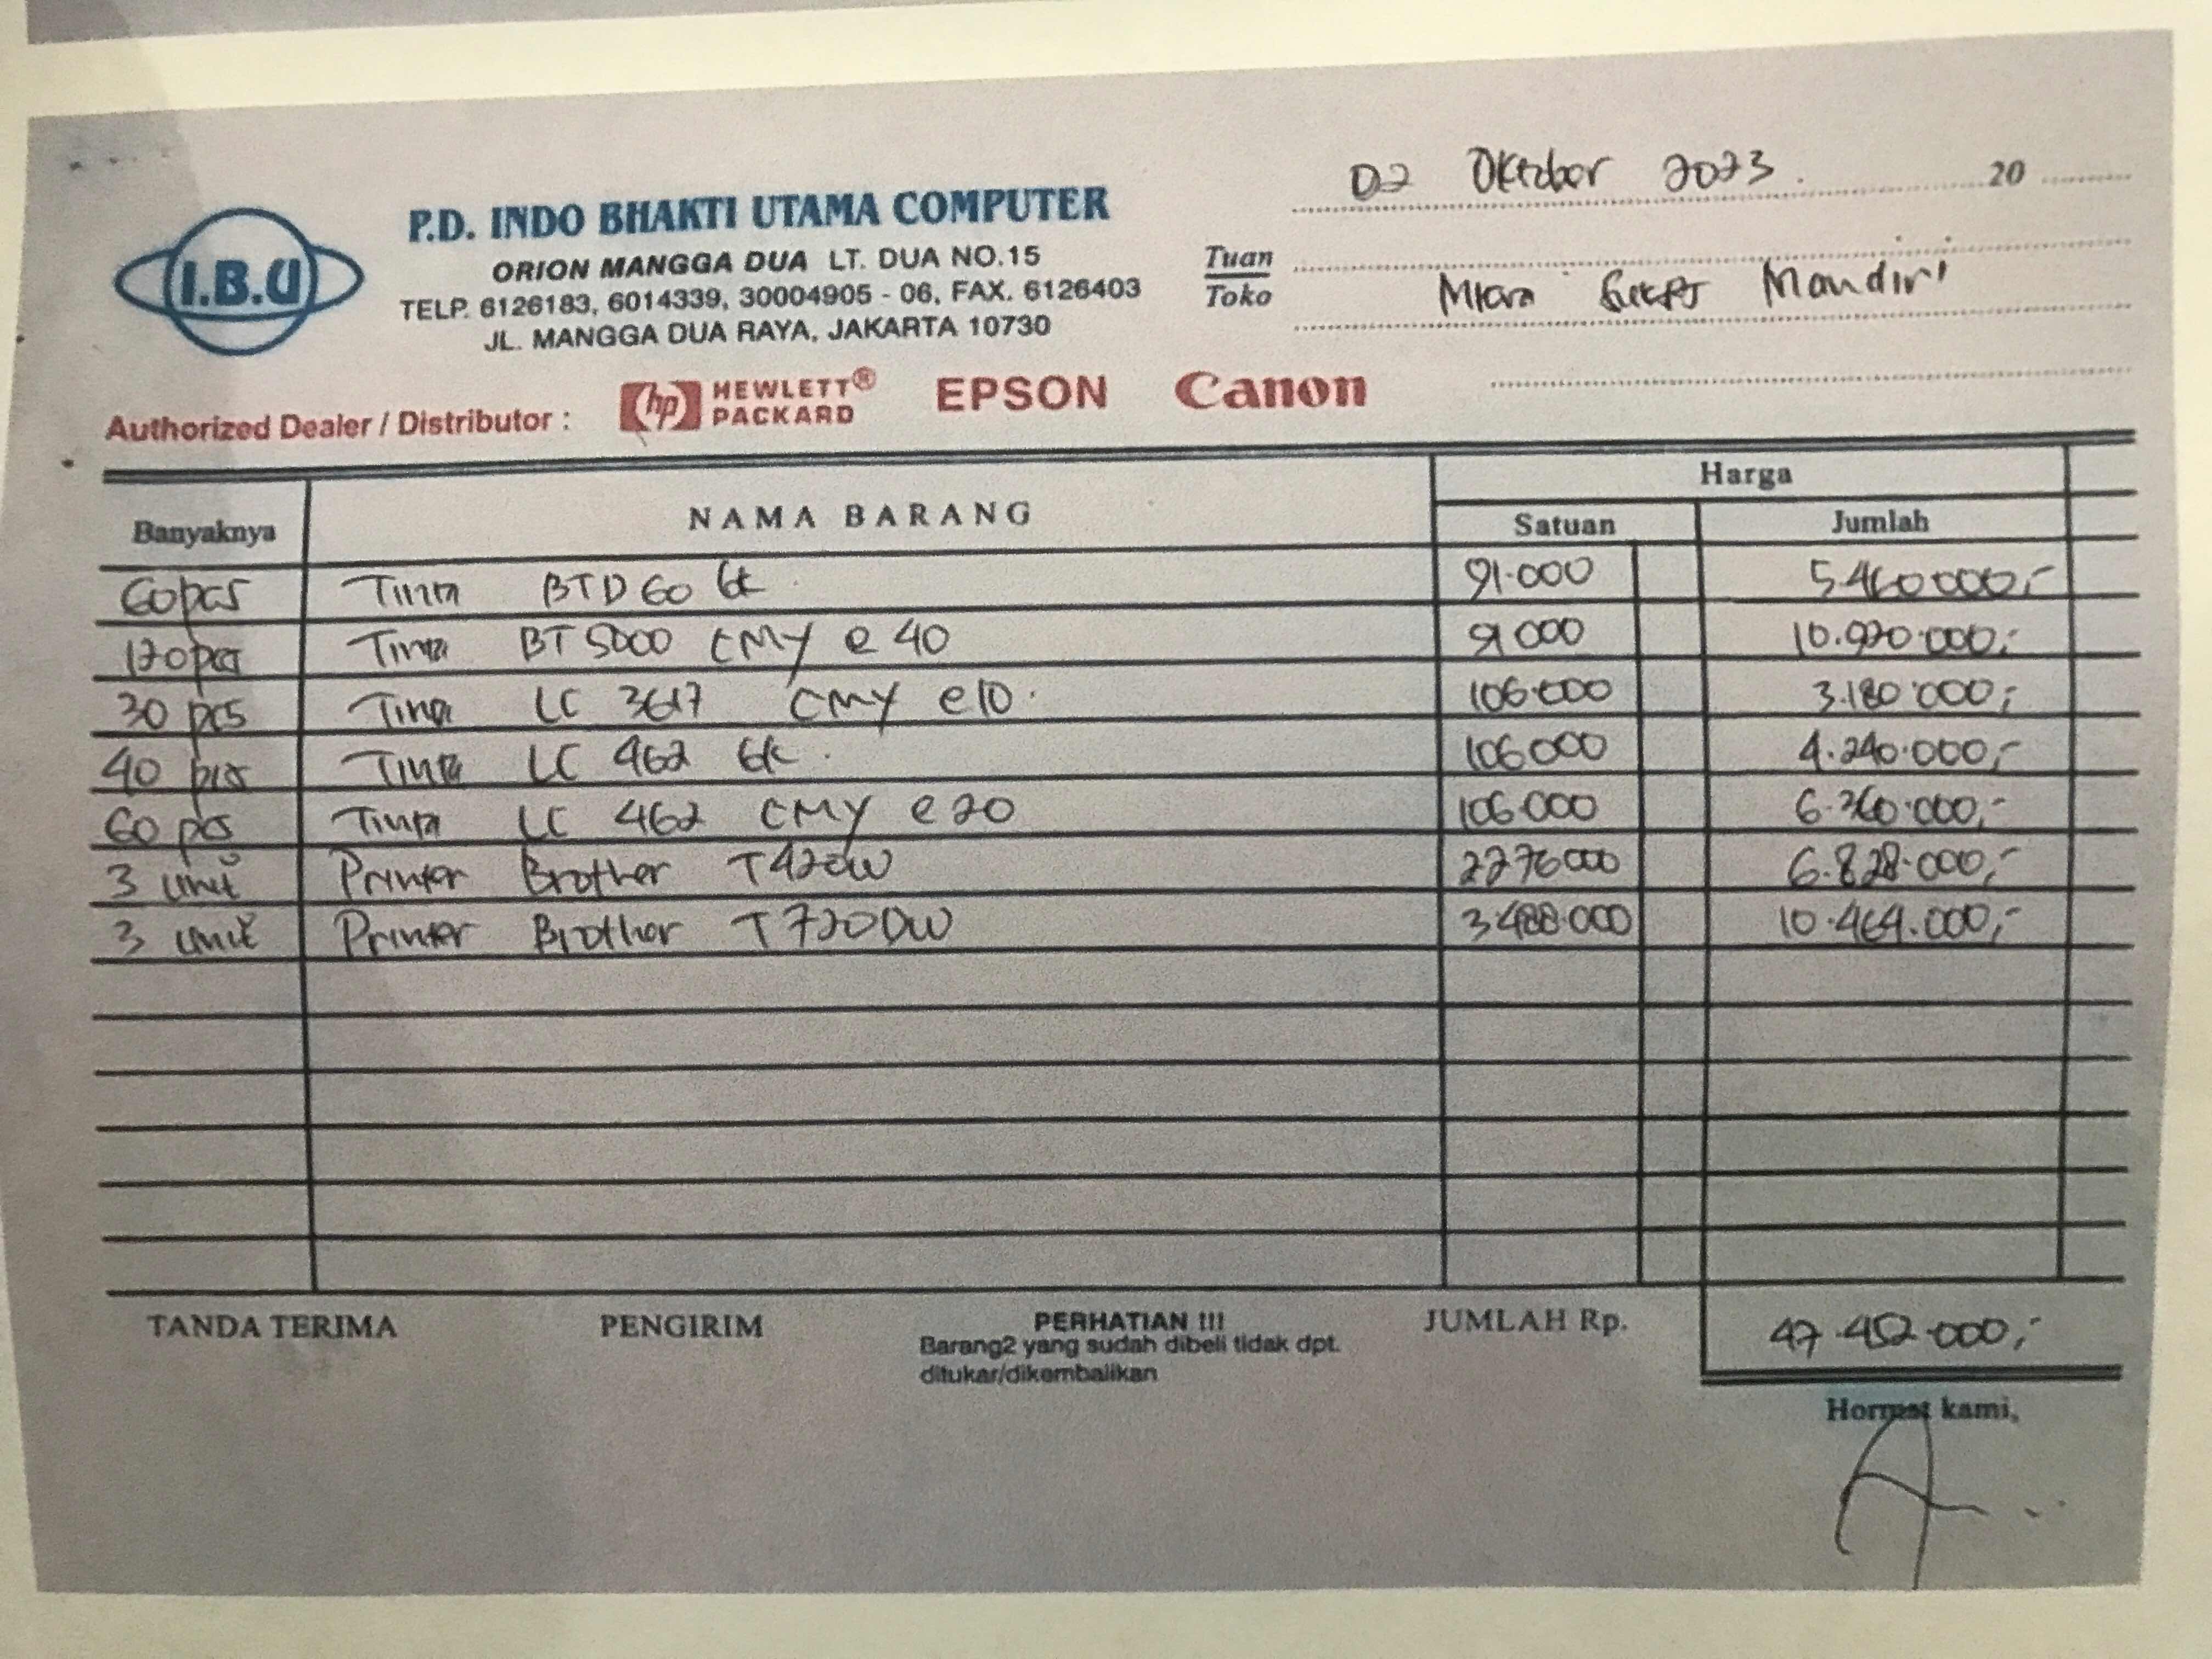 02 Oktober 2023 20
P.D. INDO BHAKTI UTAMA COMPUTER
I.B.U
ORION MANGGA DUA LT. DUA NO.15
TELP. 6126183, 6014339, 30004905 - 06, FAX. 6126403
JL. MANGGA DUA RAYA, JAKARTA 10730
Tuan
Toko
Mitra Sukses Mandiri
Authorized Dealer / Distributor : hp HEWLETT® PACKARD EPSON Canon
Banyaknya NAMA BARANG Harga
Satuan Jumlah
60 pcs Tinta BTD 60 bk 91.000 5.460.000,-
120 pcs Tinta BT 5000 CMY @ 40 91.000 10.920.000,-
30 pcs Tinta LC 3617 CMY @ 10. 106.000 3.180.000,-
40 pcs Tinta LC 462 bk. 106.000 4.240.000,-
60 pcs Tinta LC 462 CMY @ 20 106.000 6.360.000,-
3 unit Printer Brother T420W 2276000 6.828.000,-
3 unit Printer Brother T720DW 3.488.000 10.464.000,-
TANDA TERIMA PENGIRIM PERHATIAN !!! JUMLAH Rp. 47.452.000,-
Barang2 yang sudah dibeli tidak dpt.
ditukar/dikembalikan
Hormat kami,